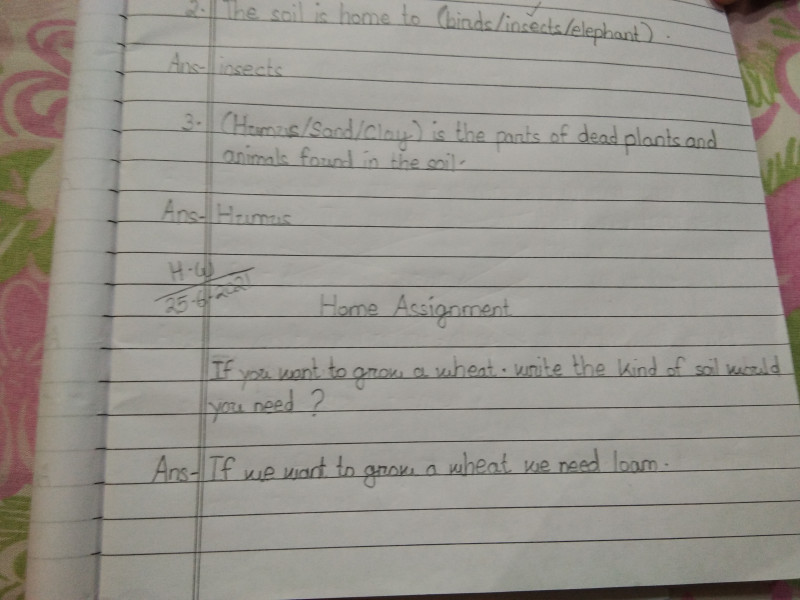 2. The soil is home to (birds/insects/elephant).
Ans- insects
3. (Humus/Sand/Clay) is the parts of dead plants and
animals found in the soil.
Ans- Humus
H.W
25-6-2021
Home Assignment
If you want to grow a wheat. write the kind of soil would
you need ?
Ans- If we want to grow a wheat we need loam.